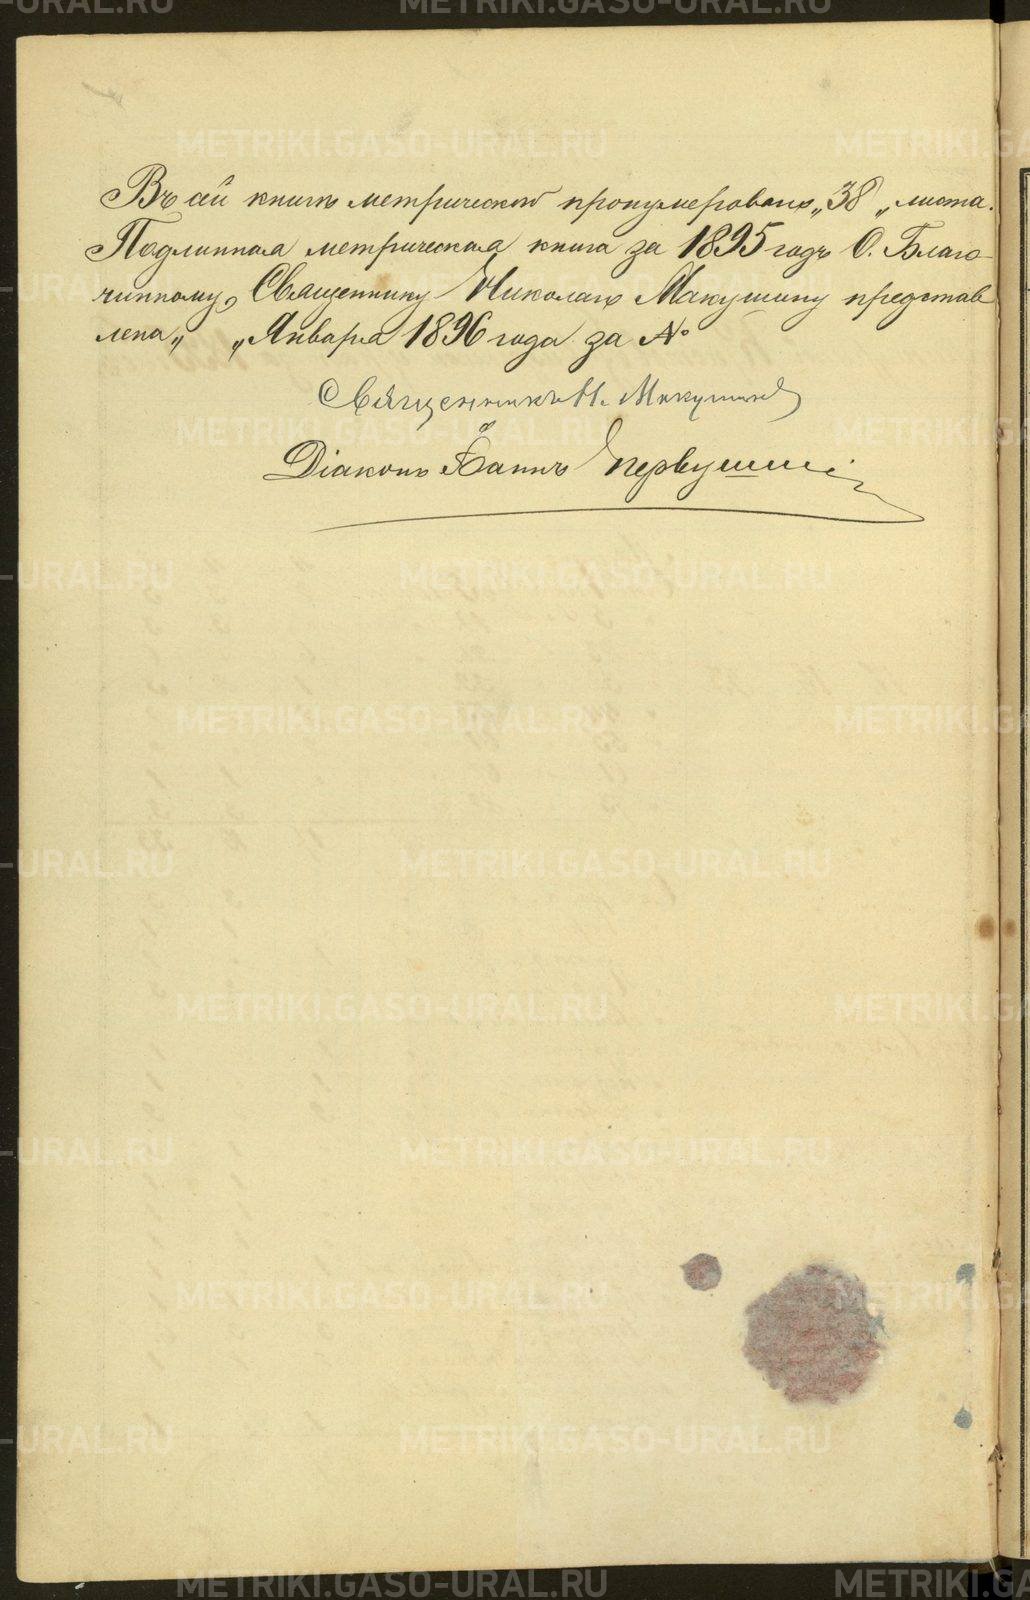 Въ сей книгѣ метрической пронумеровано „38„ листа.
Подлинная метрическая книга за 1895 годъ О. Благо-
чинному, Священнику Николаю Макушину представ
лена „ „ Января 1896 года за №
Священникъ Н. Макушинъ
Діаконъ Іоаннъ Первушинъ
METRIKI.GASO-URAL.RU